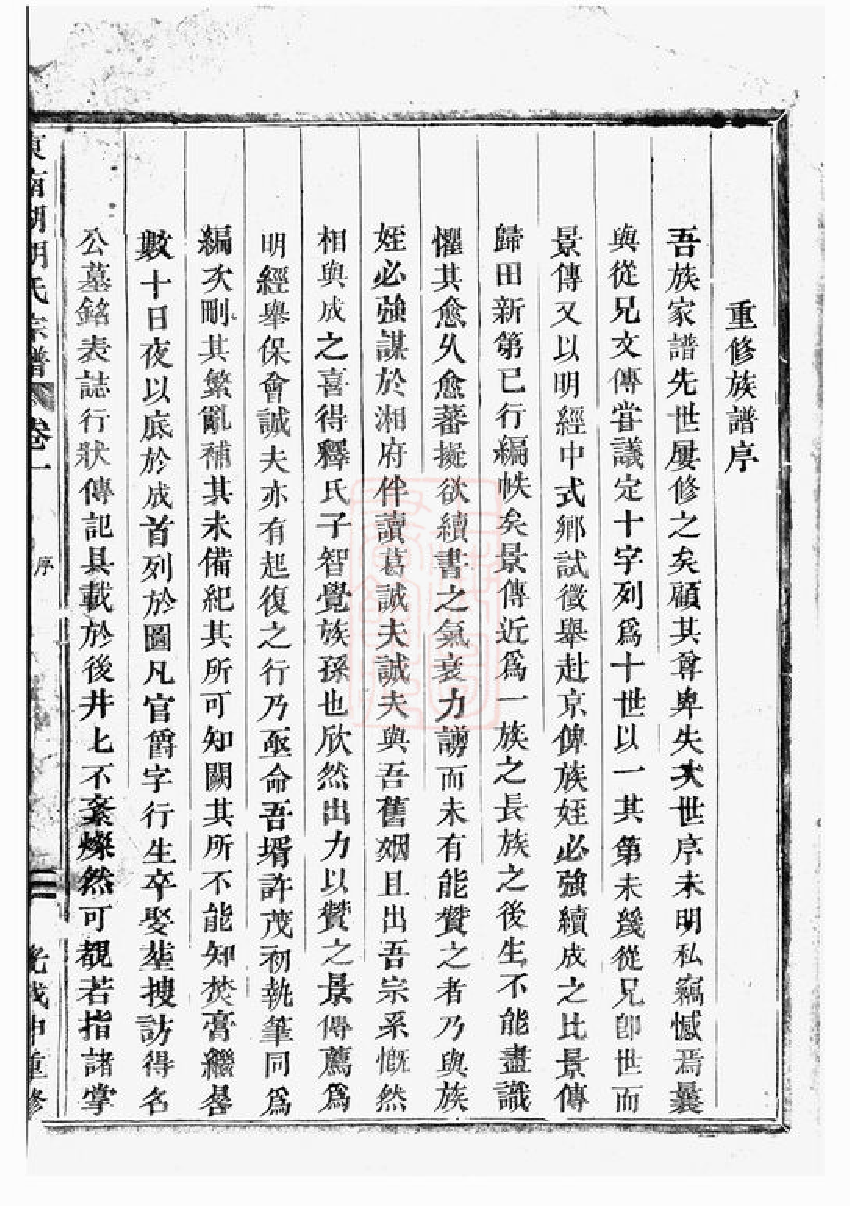 重修族譜序
吾族家譜先世屢修之矣顧其尊卑失次世序未明私竊憾焉曩
與從兄文傳嘗議定十字列爲十世以一其第未幾從兄卽世而
景傳又以明經中式鄉試徵舉赴京俾族姪必強續成之比景傳
歸田新第已行編帙矣景傳近爲一族之長族之後生不能盡識
懼其愈久愈蕃擬欲續書之氣衰力謭而未有能贊之者乃與族
姪必強謀於湘府伴讀葛誠夫誠夫與吾舊姻且出吾宗系慨然
相與成之喜得釋氏子智覺族孫也欣然出力以贊之景傳薦爲
明經舉保會誠夫亦有起復之行乃亟命吾壻許茂初執筆同爲
編次刪其繁亂補其未備紀其所可知闕其所不能知焚膏繼晷
數十日夜以底於成首列於圖凡官爵字行生卒娶塟搜訪得名
公墓銘表誌行狀傳記具載於後井匕不紊燦然可覩若指諸掌
東南湖胡氏宗譜 卷一 序 二 光戊申重修